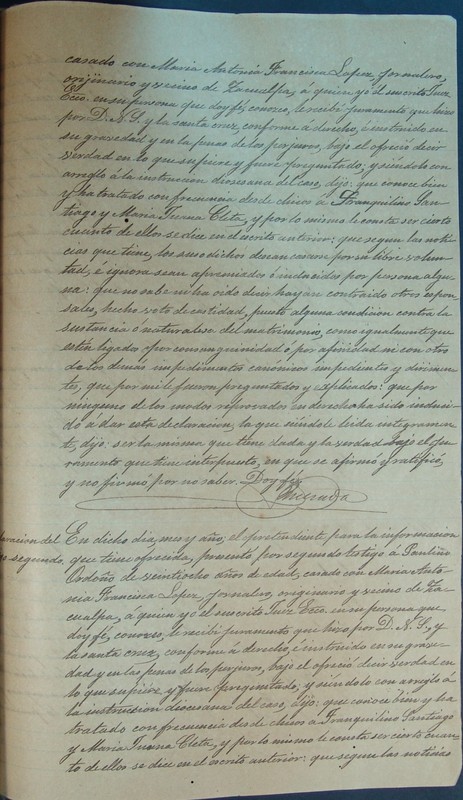 casado con Maria Antonia Francisca Lopez, jornalero,
orijinario y vecino de Zacualpa, á quien yo el suscrito Juez
Ecco. en su persona que doy fé, conozco, le recibí juramento que hizo
por D. N. S. y la santa cruz, conforme á derecho, é instruido en
su gravedad y en la penas de los perjuros, bajo él ofreció decir
verdad en lo que supiere y fuere preguntado, y siéndolo con
arreglo á la instruccion diocesana del caso, dijo: que conoce bien
y ha tratado con frecuencia desde chicos á Tranquilino San-
tiago y Maria Juana Cleta, y por lo mismo le consta ser cierto
cuanto de ellos se dice en el escrito anterior: que segun las noti-
cias que tiene, los susodichos desean casarse por su libre volun-
tad, é ignora sean apremiados ó inducidos por persona algu-
na: que no sabe ni ha oido decir hayan contraido otros espon-
sales, hecho voto de castidad, puesto alguna condición contra la
sustancia ó naturaleza del matrimonio, como igualmente que
estén ligados por consanguinidad ó por afinidad ni con otro
de los demas impedimentos canónicos impedientes y dirimen-
tes, que por mí le fueron preguntados y esplicados: que por
ninguno de los modos reprovados en derecho ha sido induci-
do á dar esta declaracion, la que siéndole leida integramen-
te, dijo: ser la misma que tiene dada y la verdad bajo el ju-
ramento que tiene interpuesto, en que se afirmó y ratificó,
y no firmó por no saber. Doy fé.
En dicho dia, mes y año, el pretendiente para la informacion
go segundo. que tiene ofrecida, presentó por segundo testigo á Paulino
Ordoño de veintiocho años de edad, casado con Maria Anto-
nia Francisca Lopez, jornalero, originario y vecino de Za-
cualpa, á quien yo el suscrito Juez Ecco. en su persona que
doy fé, conozco, le recibí juramento que hizo por D. N. S. y
la santa cruz, conforme á derecho, é instruido en su grave-
dad y en las penas de los perjuros, bajo él ofreció decir verdad en
lo que supiere y fuere preguntado, y siéndolo con arreglo á
la instrucsion diocesana del caso, dijo: que conoce bien y ha
tratado con frecuencia desde chicos á Tranquilino Santiago
y Maria Juana Cleta, y por lo mismo le consta ser cierto cuan-
to de ellos se dice en el escrito anterior: que segun las noticias